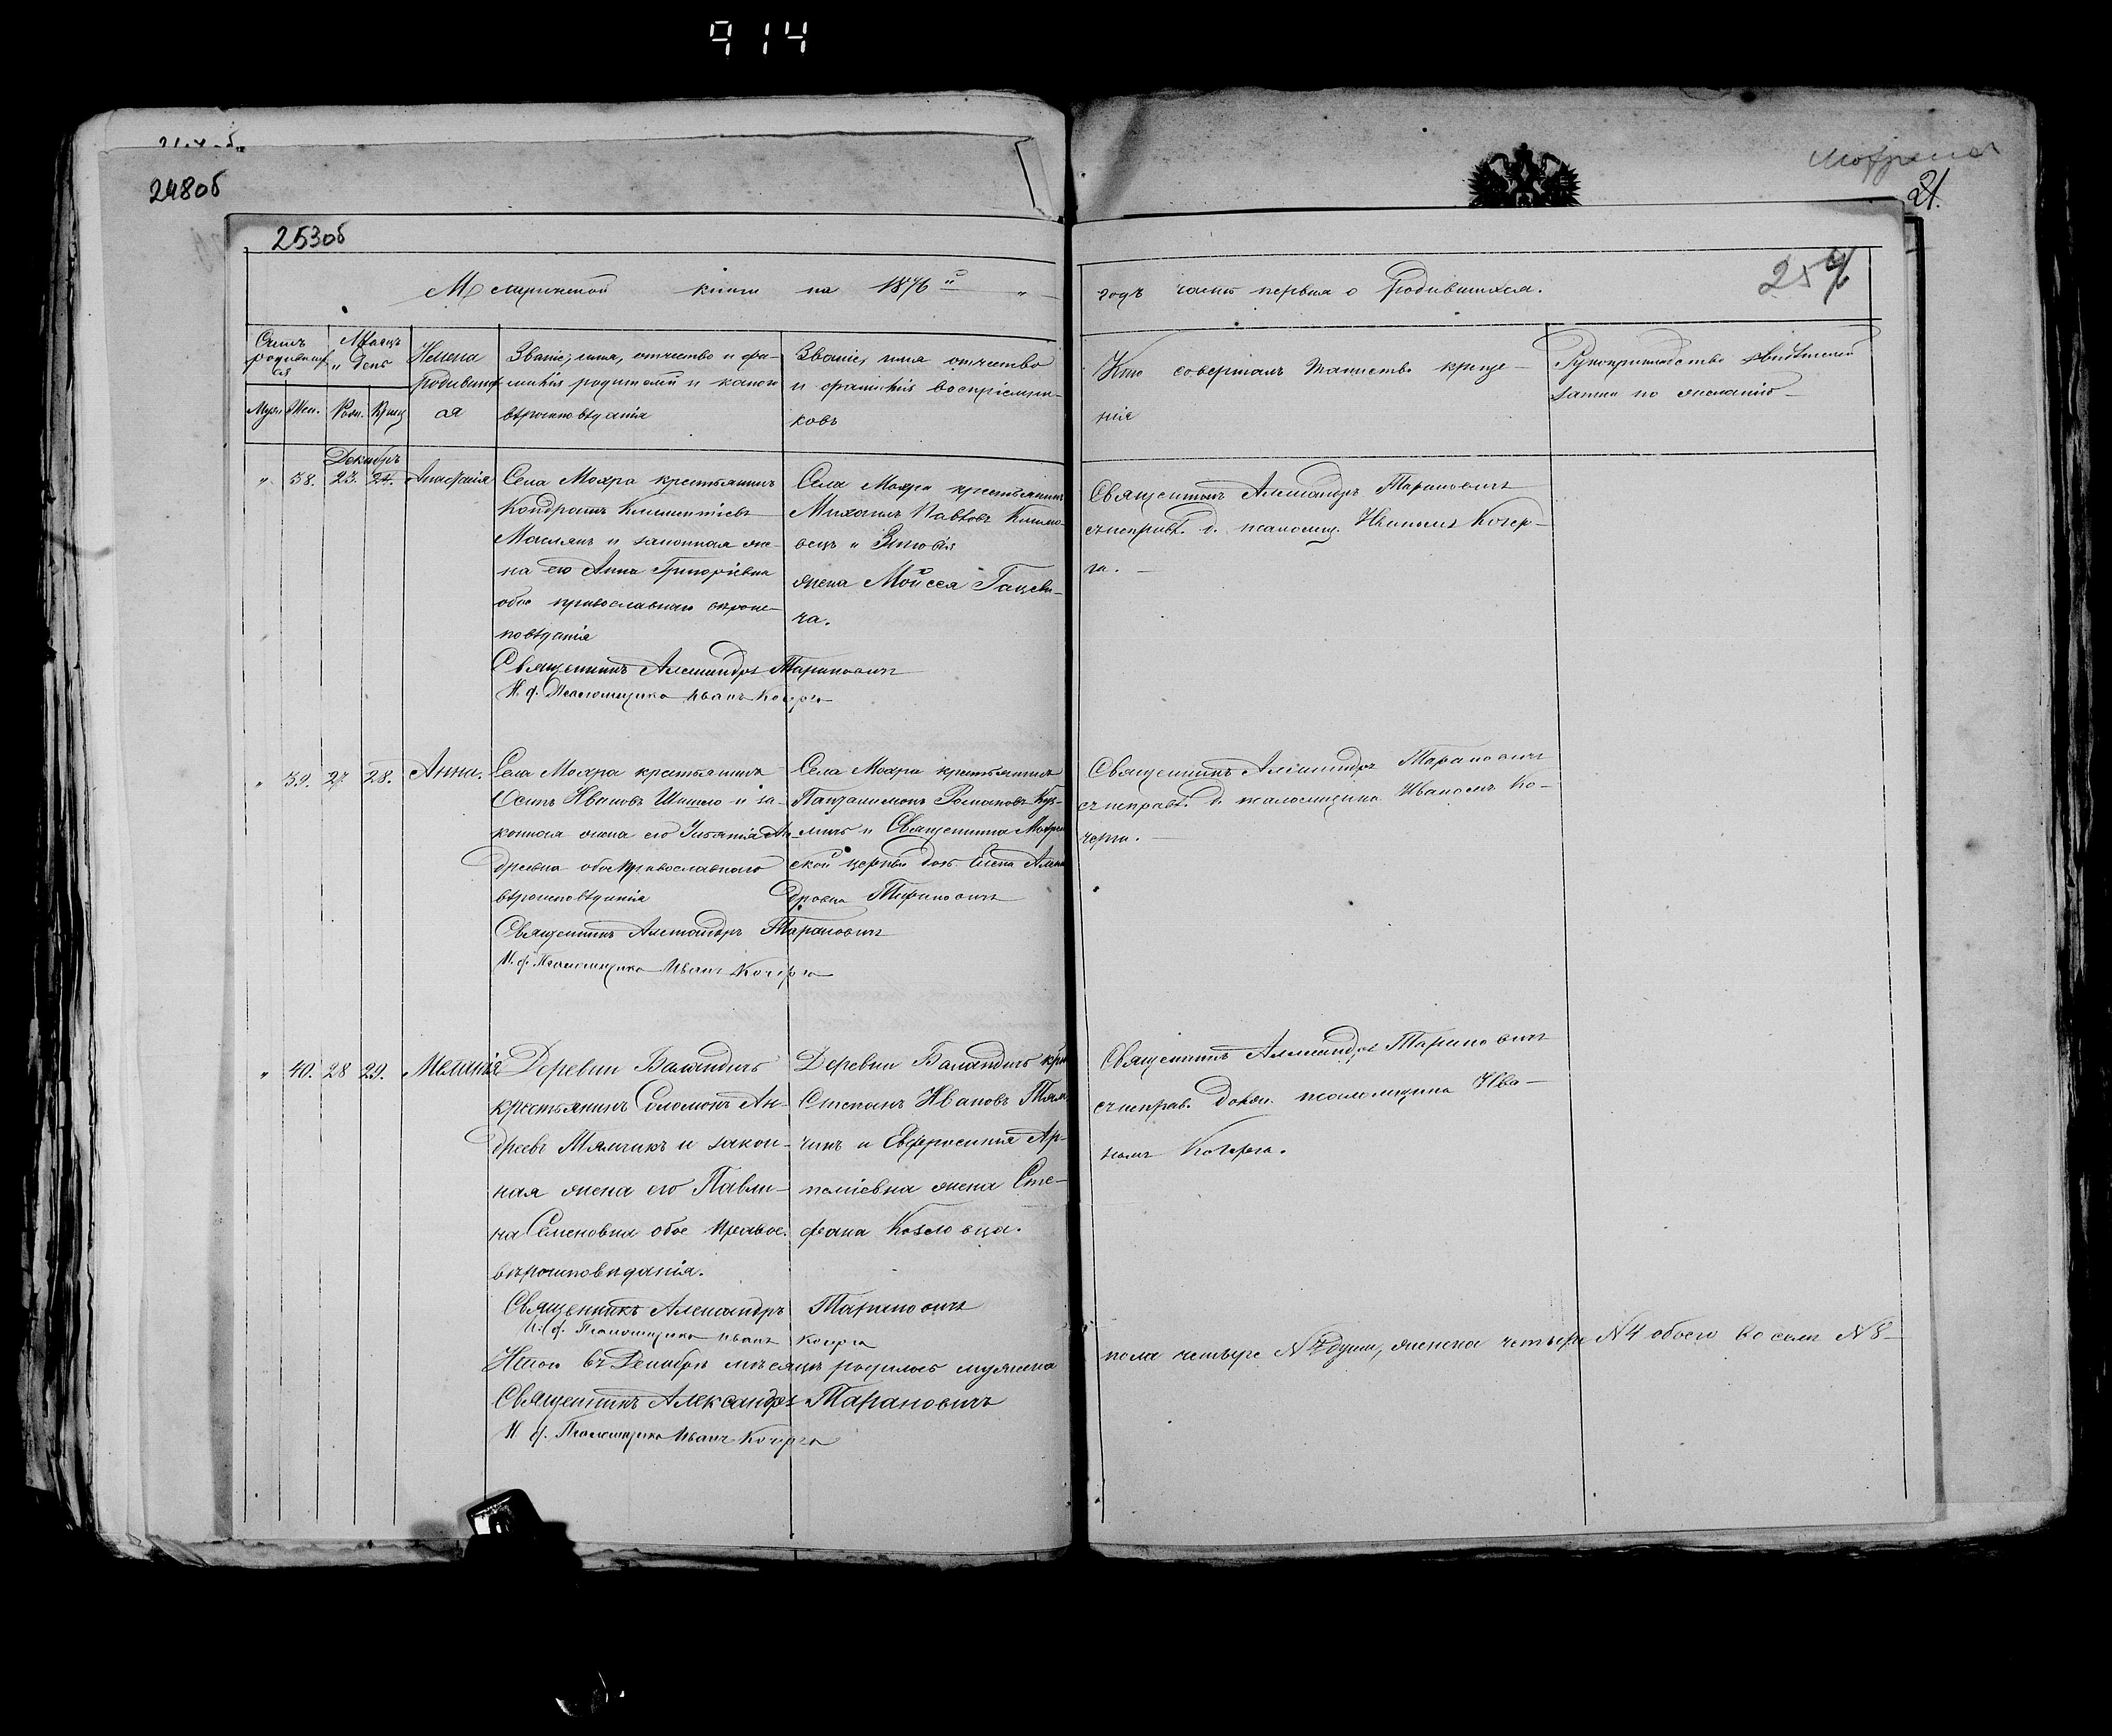 914
248об
253об
21.
254
Метрической книги на 1876й
годъ часть первая о родившихся.
Счетъ родившихся
Мѣсяцъ и день
Имена родившихся
Званіе, имя, отчество и фамилія родителей и какого вѣроисповѣданія
Званіе, имя отчество и фамилія воспріемниковъ
Кто совершалъ таинство крещенія
Рукоприкладство свидѣтелей записи по желанію
Муж. Жен. Рожд. Крещ.
Декабрь
" 38. 23. 24. Анастасія
Села Мохра крестьянинъ
Кондратъ Климентіевъ
и законная же-
на его Анна Григоріевна
обое православнаго вѣроис-
повѣданія
Священникъ Александръ Тарановичъ
И. ф. Псаломщика Иванъ Кочерга
Села Мохра крестьянинъ
Михаилъ Павловъ Климо-
вецъ и
жена Мойсея Гацеви-
ча.
Священникъ Александръ Тарановичъ
съ исправ. д. псаломщ. Иваномъ Кочер-
га.
" 39. 27. 28. Анна.
Села Мохра крестьянинъ
Осипъ Ивановъ и за-
конная жена его Ульянія Ан-
дреевна обое православнаго
вѣроисповѣданія
Священникъ Александръ Тарановичъ
И. ф. Псаломщика Иванъ Кочерга
Села Мохра крестьянинъ
Пантелимонъ Романовъ Куз-
мичъ и Священника Мохрен
ской церкви дочь Елена Алексан
дровна Тарановичъ
Священникъ Александръ Тарановичъ
съ исправ. д. псаломщика Иваномъ Ко-
черги.
" 40. 28 29. Меланія
Деревни Баландичъ
крестьянинъ Соломонъ Ан-
дреевъ Тямчикъ и закон-
ная жена его Павли-
на Семеновна обое правос.
вѣроисповѣданія.
Священникъ Александръ Тарановичъ
И. ф. Псаломщика Иванъ Кочерга
Деревни Баландичъ кре
Степанъ Ивановъ Тям
чикъ и Евфросинія Ар-
жена Сте-
фана Козловца.
Священникъ Александръ Тарановичъ
съ исправ. должн. псаломщика Ива-
номъ Кочерга.
Итого въ Декабрѣ мѣсяцѣ родилось мужеска
пола четыре N4 души, женска четыре N4 обоего N8
Священникъ Александръ Тарановичъ
И. ф. Псаломщика Иванъ Кочерга